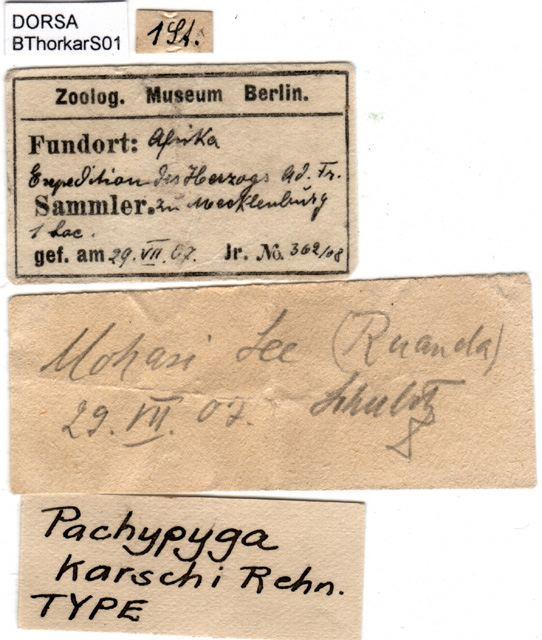 DORSA
BThorkarS01
1 St.
Zoolog. Museum Berlin.
Fundort: Afrika
Expedition des Herzogs Ad. Fr.
Sammler. zu Mecklenburg
1 Loc.
gef. am 29. VII. 07. Jr. No. 362/08
Mohasi See (Ruanda)
29. VII. 07.
Pachypyga
karschi Rehn.
TYPE